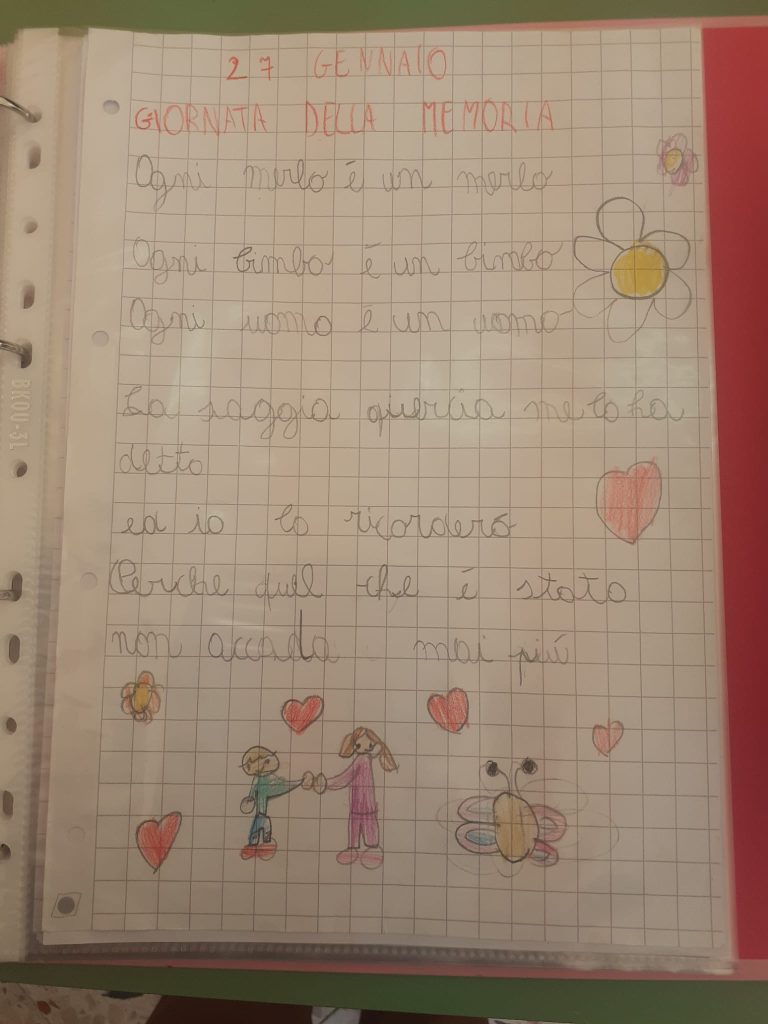 27 GENNAIO
GIORNATA DELLA MEMORIA
Ogni merlo è un merlo
Ogni bimbo è un bimbo
Ogni uomo è un uomo
La saggia quercia me lo ha
detto
ed io lo ricorderó
Perche quel che è stato
non accada mai piú